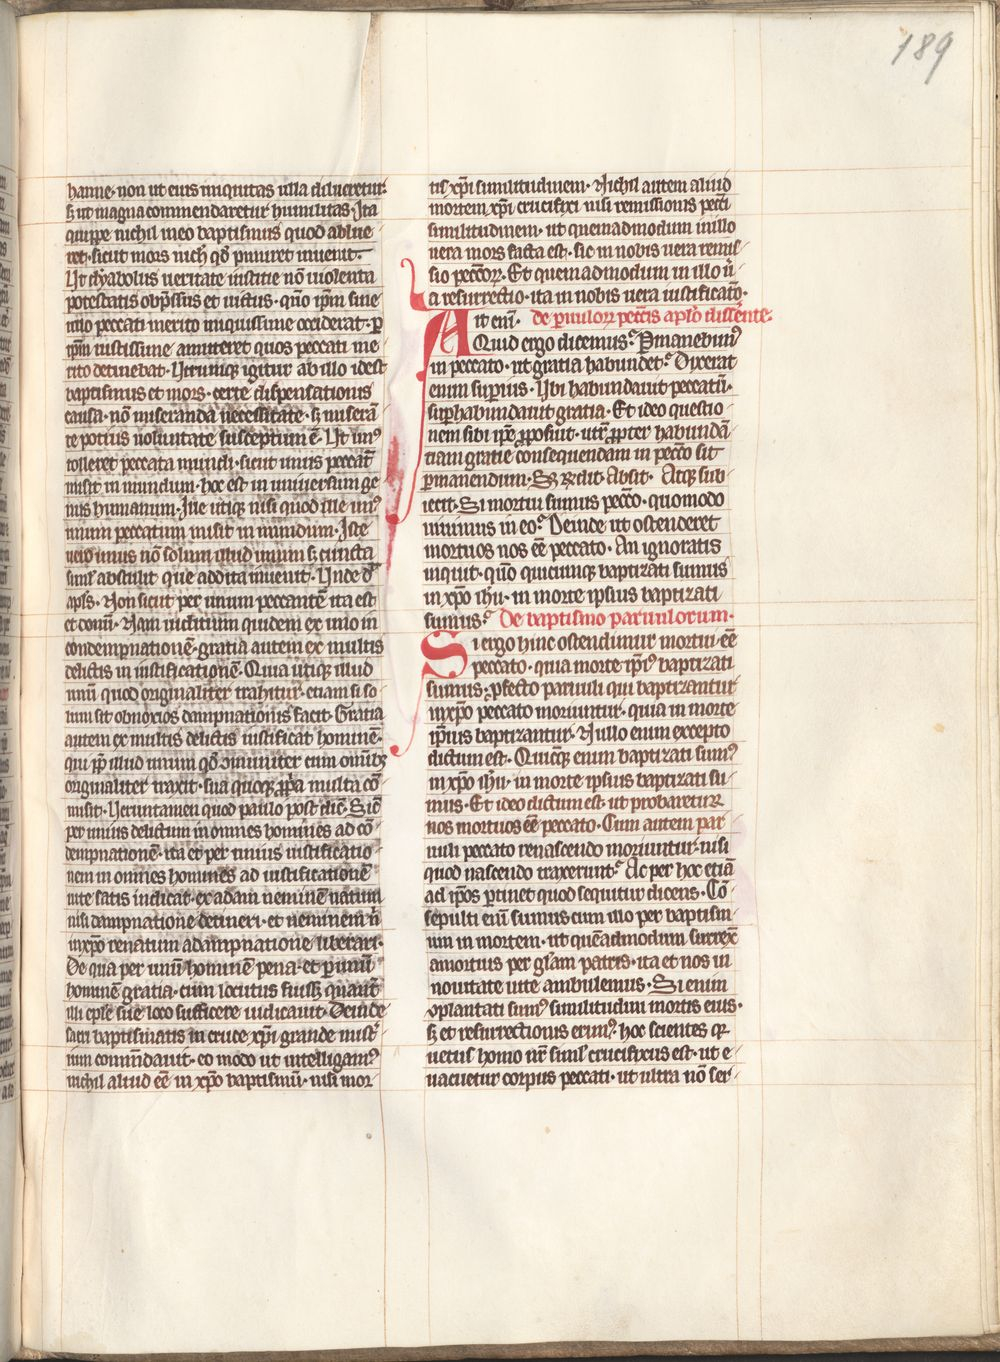 189
hanne· non ut eius iniquitas ulla dilueretur·
ꝫ ut magna commendaretur humilitas· Ita
quippe nichil in eo baptismus quod ablue
ret· sicut mors nich̄ qd̄ puniret inuenit·
Ut dyabolus ueritate iustitie nō uiolenta
potestatis obp̄ssus et uictus· quo ip̄m sine
ullo peccati merito iniquissime occiderat· ꝑ
ip̄m iustissime amitteret quos peccati me
rito detinebat· Utrumqꝫ igitur ab illo id est
baptismus et mors· certe dispensationis
causa· nō miseranda necessitate· ꝫ miserā
te potius uoluntate susceptum ē· Ut unꝰ
tolleret peccata mundi· sicut unus peccatū
misit in mundum· hoc est in uniuersum ge
nus humanum· Ille utiqꝫ nisi quod ille unꝰ
unum peccatum misit in mundum· Iste
uero unus nō solum illud unum ꝫ cuncta
simł abstulit que addita inuenit· Unde d̄
apłs· Non sicut per unum peccantē ita est
et donū· Nam iudicium quidem ex uno in
condempnationē· gratia autem ex multis
delictis in iustificationē· Quia utiqꝫ illud
unū quod originaliter trahitur· etiam si so
lum sit obnoxios dampnationis facit· Gratia
autem ex multis delictis iustificat hominē·
qui ꝑp̄ illud unum qd̄ cōmuniter cum omībꝫ
originaliter traxit· sua quoqꝫ ꝓp̄a multa cō
misit· Ueruntamen quod paulo post dic̄· Sic̄
per unius delictum in omnes homines ad cō
dempnationē· ita et per unius iustificatio
nem in omnes homines ad iustificationē
uite satis indicat· ex adam neminē natum
nisi dampnatione detineri· et neminem ñ
in xp̄o renatum a dampnatione liberari·
De qua per unū hominē pena· et ꝑ unū
hominē gratia· cum locutus fuissꝫ quantū
illi eple sue loco sufficere iudicauit· Deinde
sacri baptismatis in cruce xp̄i grande mist̄
rium cōmēdauit· eo modo ut intelligamꝰ
nichil aliud eē in xp̄o baptismū· nisi mor
tis xp̄i similitudinem· Nichil autem aliud
mortem xp̄i crucifixi nisi remissionis pecc̄i
similitudinem· ut quemadmodum in illo
uera mors facta est· sic in nobis uera remis
sio peccōꝝ· Et quemadmodum in illo ū
a resurrectio· ita in nobis uera iustificatō·
Ait enī· de ꝑuulorꝝ pecc̄is aplō dissēnte·
Quid ergo dicemus? Pmanebimꝰ
in peccato· ut gratia habundet? Dixerat
enim supius· Ubi habundauit peccatū·
sup habundauit gratia· Et ideo questio
nem sibi ip̄e ꝓposuit· utꝝ ꝓpter habundā
tiam gratie consequendam in pecc̄o sit
ꝑmanendum· Sꝫ rn̄dit· Absit· Atqꝫ sub
iecit· Si mortui sumus pecc̄o· quomodo
uiuimus in eo? Deinde ut ostenderet
mortuos nos eē peccato· An ignoratis
inquit· quō quicunqꝫ baptizati sumus
in xp̄o ihū· in morte ipsius baptizati
sumus? De baptismo paruulorum·
Si ergo hinc ostendimur mortui eē
peccato· quia morte ip̄iꝰ baptizati
sumus· ꝓfecto paruuli qui baptizantur
in xp̄o peccato moriuntur· quia in morte
ip̄ius baptizantur· Nullo enim excepto
dictum est· Quicūqꝫ enim baptizati sumꝰ
in xp̄o ihū· in morte ipsius baptizati su
mus· Et ideo dictum est ut probaretur
nos mortuos eē peccato· Cum autem par
uuli peccato renascendo moriuntur· nisi
quod nascendo traxerunt? Ac per hoc etiā
ad ip̄os ꝑtinet quod sequitur dicens· Cō
sepulti enī sumus cum illo per baptism
um in mortem· ut quēadmodum surrex̄
a mortuis per glām patris· ita et nos in
nouitate uite ambulemus· Si enim
cōplantati sumꝰ similitudini mortis eius·
ꝫ et resurrectionis erimꝰ· hoc scientes qꝛ
uetus homo nr̄ simł crucifixus est· ut e
uacuetur corpus peccati· ut ultra nō ser